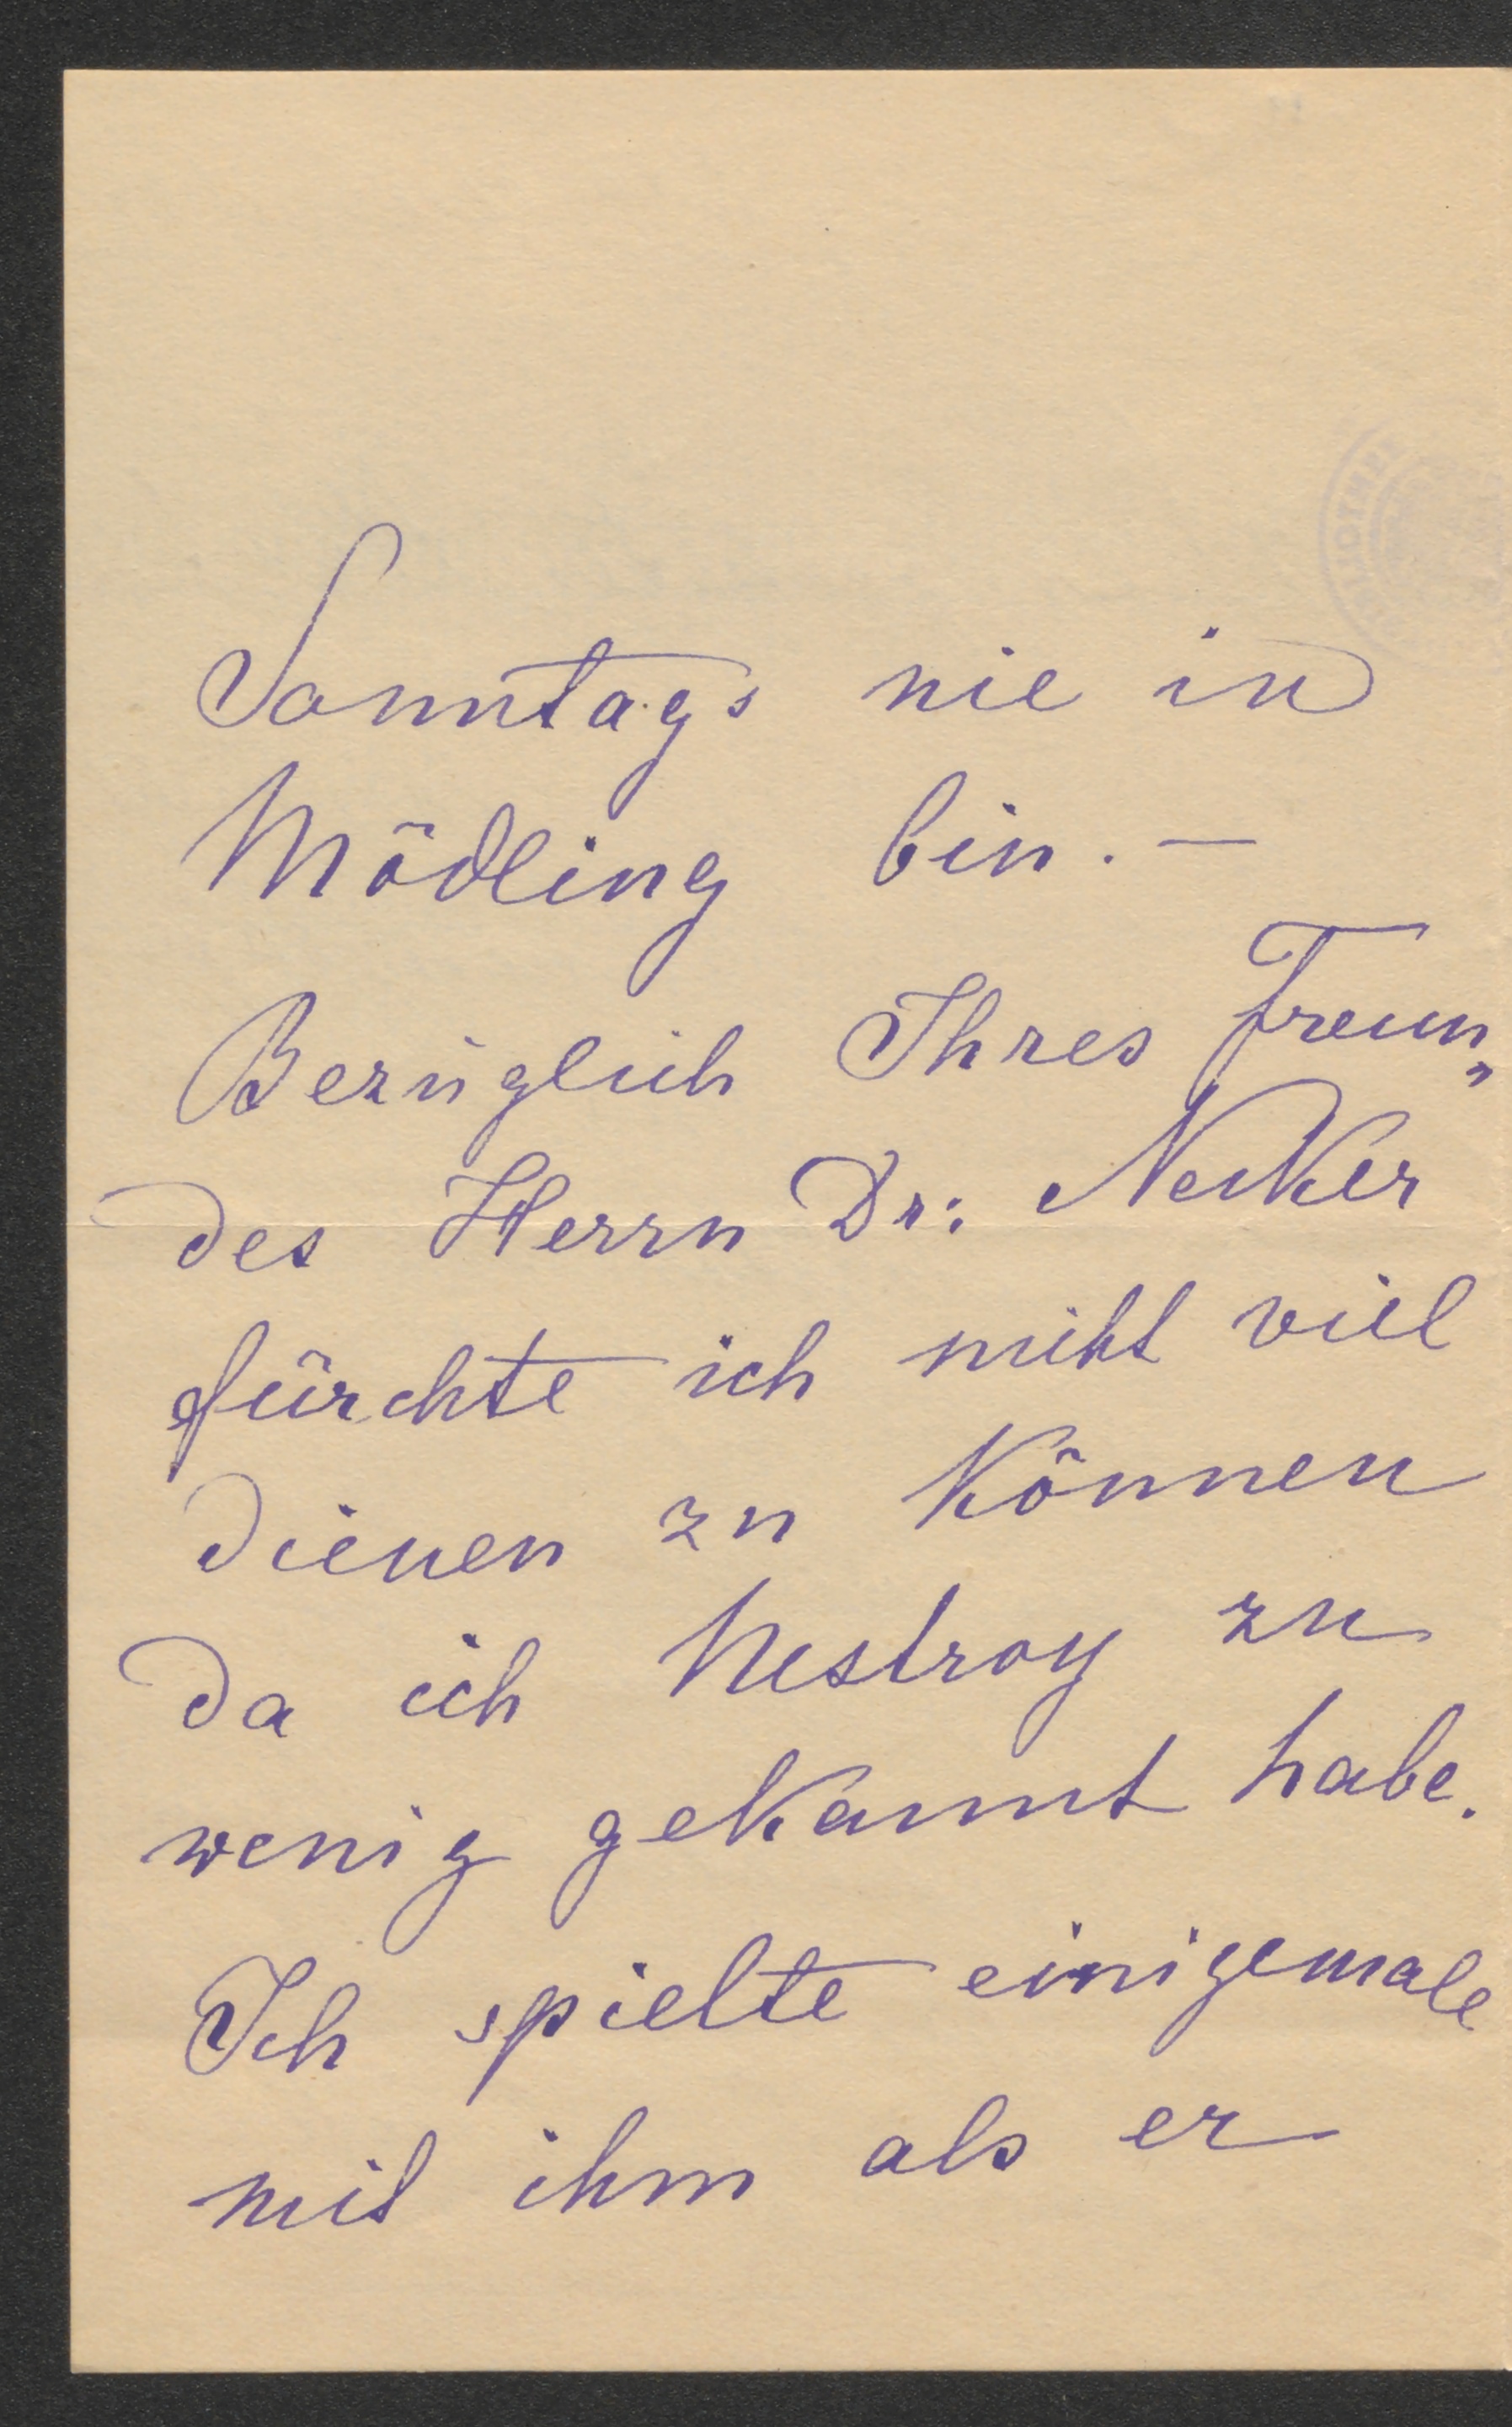 Sonntags nie in
Mödling bin. —
Bezüglich Ihres Freun„
des Herrn Dr: Necker
fürchte ich nicht viel
dienen zu können
da ich Nestroy zu
wenig gekannt habe.
Ich spielte einigemale
mit ihm als er